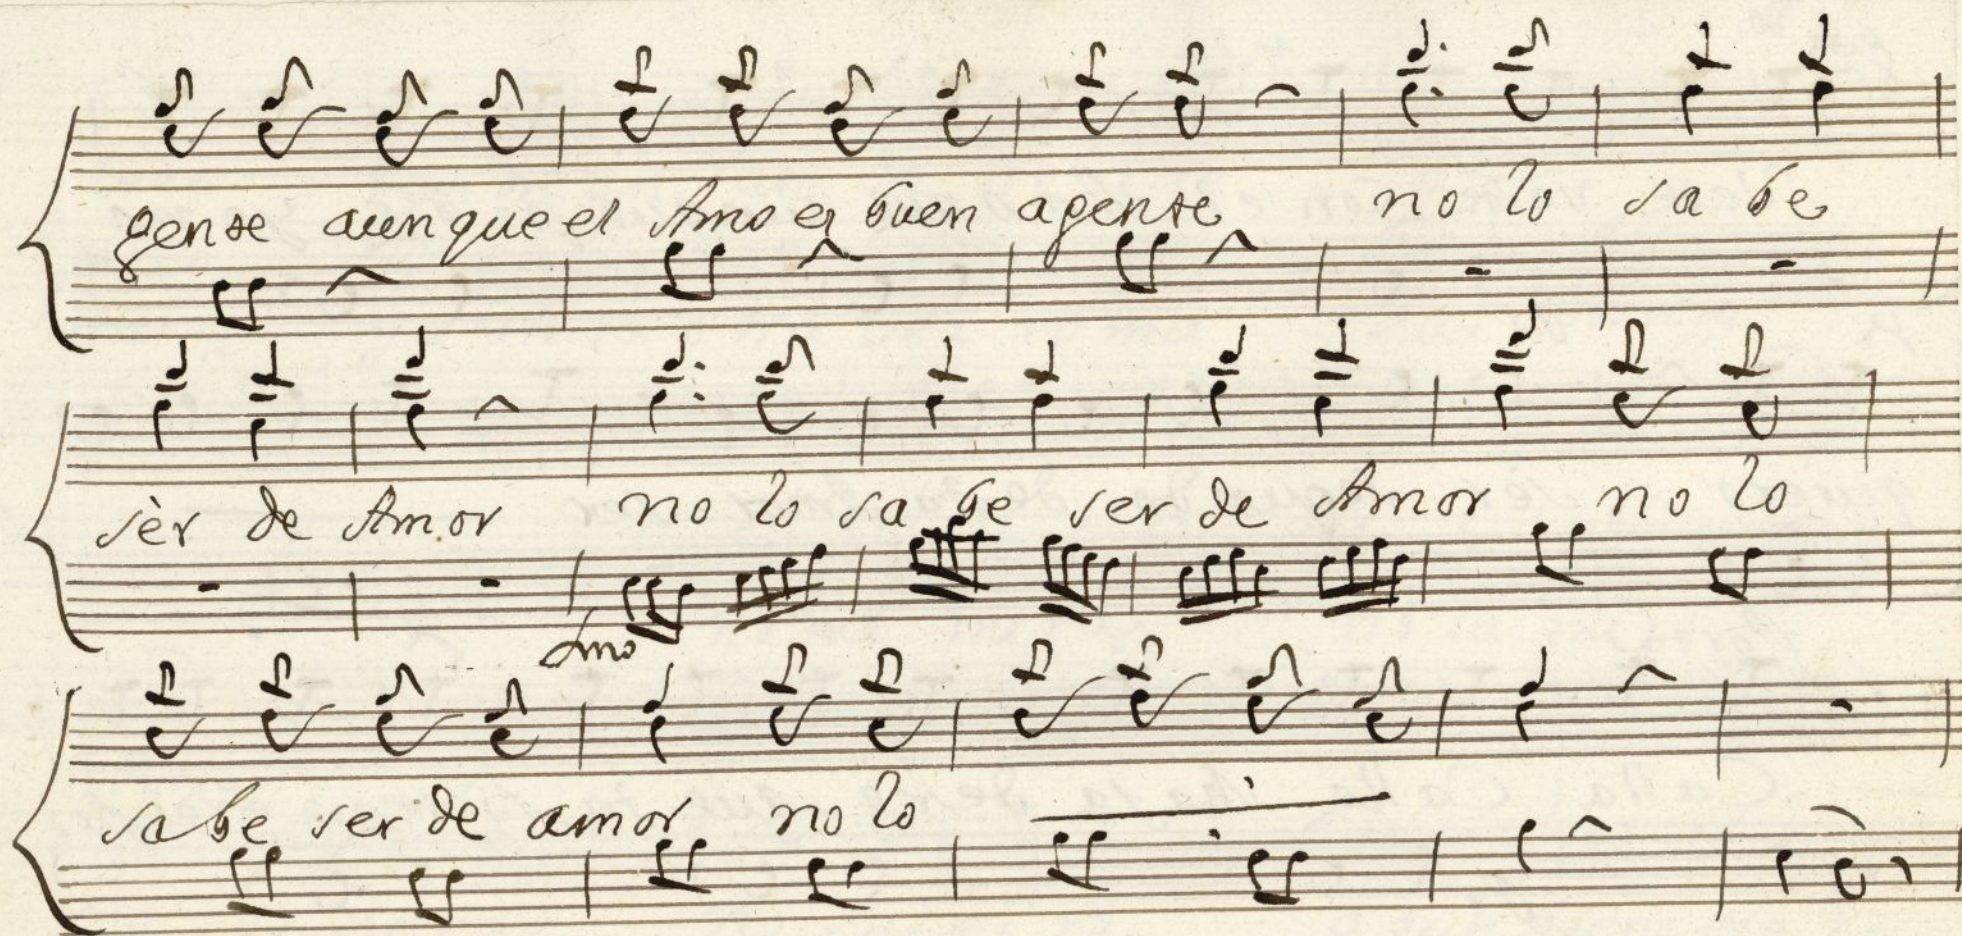 gente aunque el Amo es buen agente no lo sabe
sèr de Amor no lo sabe ser de Amor no lo
Amo
sabe ser de amor no lo